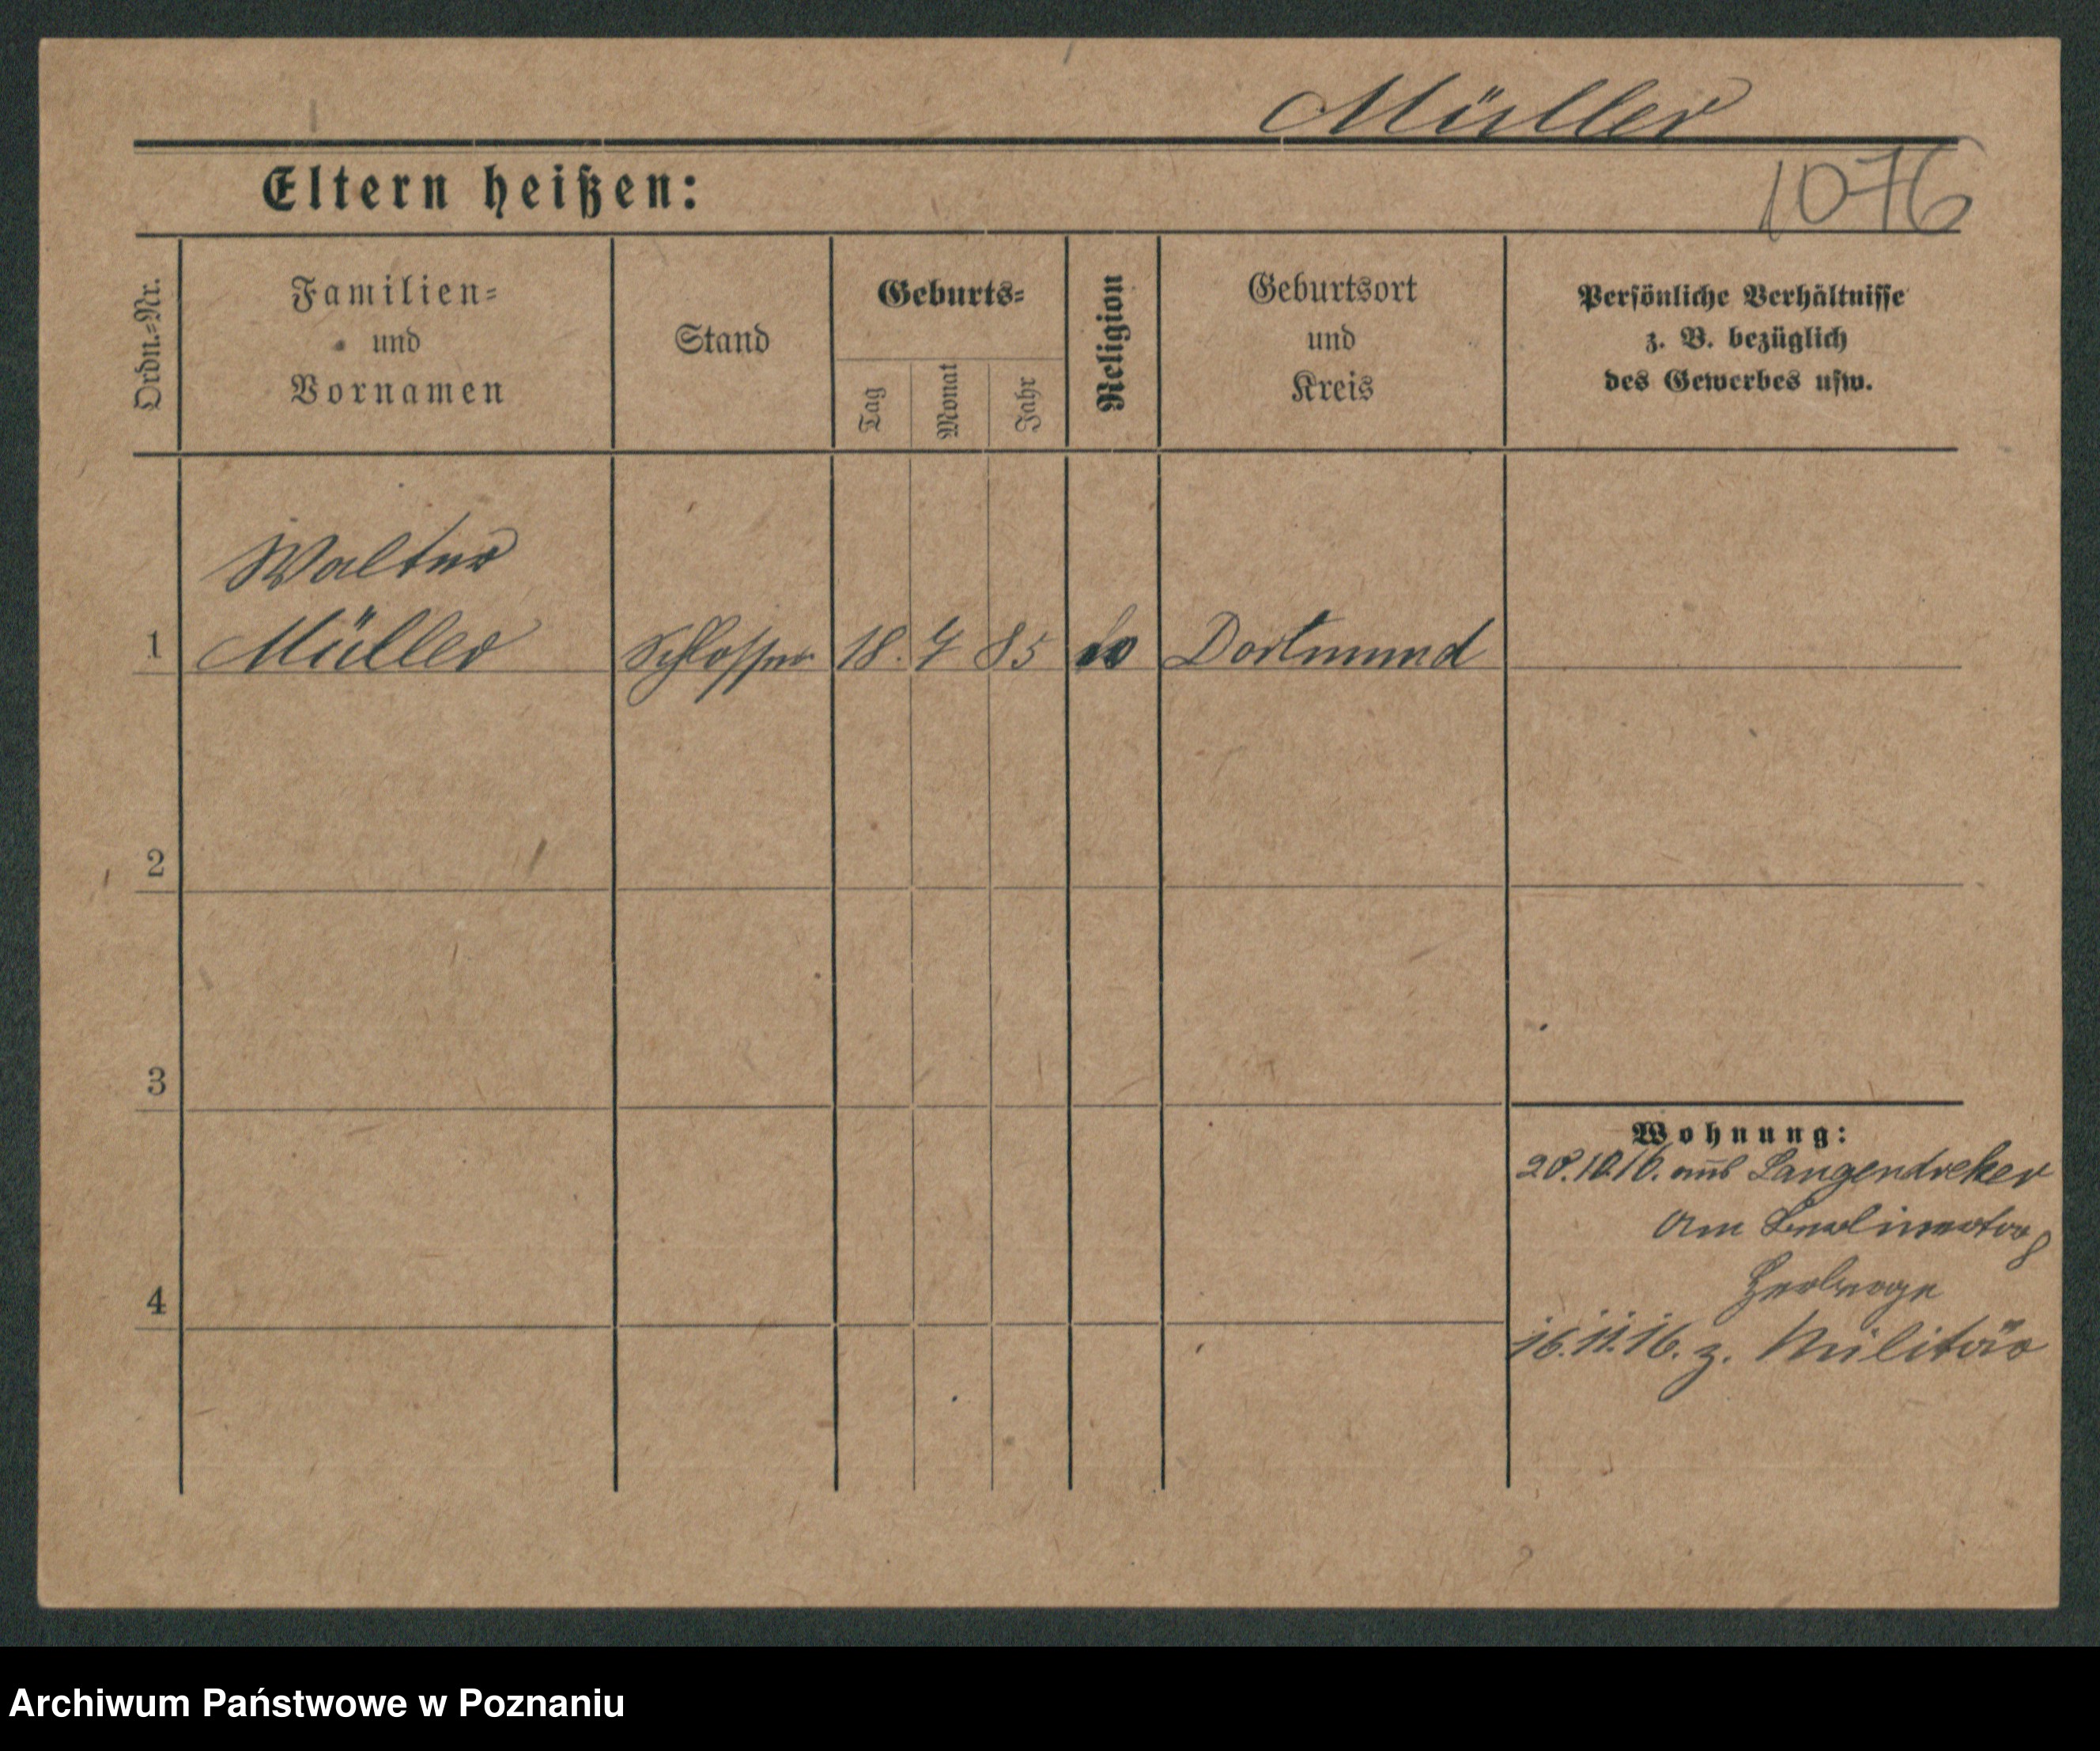 Müller
Eltern heißen:
1076
Ordn.=Nr.
Familien=
und
Vornamen
Stand
Geburts=
Tag
Monat
Jahr
Religion
Geburtsort
und
Kreis
Persönliche Verhältnisse
z. B. bezüglich
des Gewerbes usw.
Walter
1 Müller Schlosser 18. 4 85 Dortmund
2
3
4
Wohnung:
aus Langendreker
Am Berlinertor 8
Herberge
16.11.16. z. Militär
Archiwum Państwowe w Poznaniu